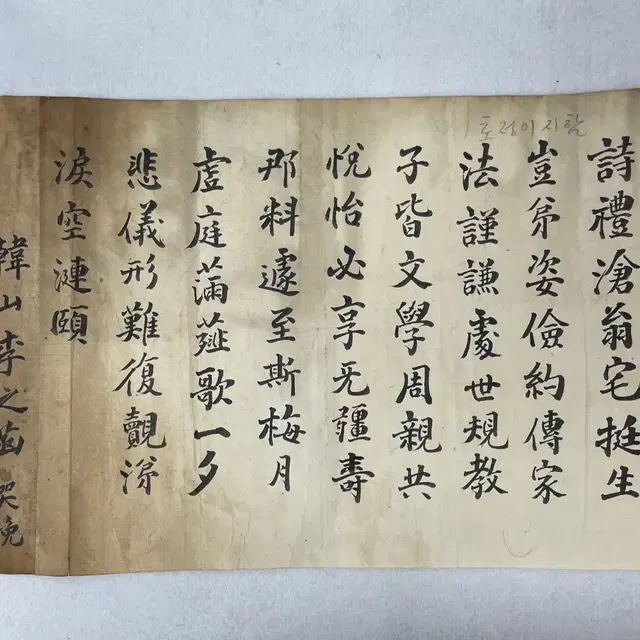 토정이지함
詩禮滄翁宅挺生
豈弟姿儉約傳家
法謹謙處世規教
子皆文學周親共
悅怡必享无疆壽
那料遽至斯梅月
虛庭滿薤歌一夕
悲儀形難復覿涕
淚空漣頤
韓山李之菡 哭挽